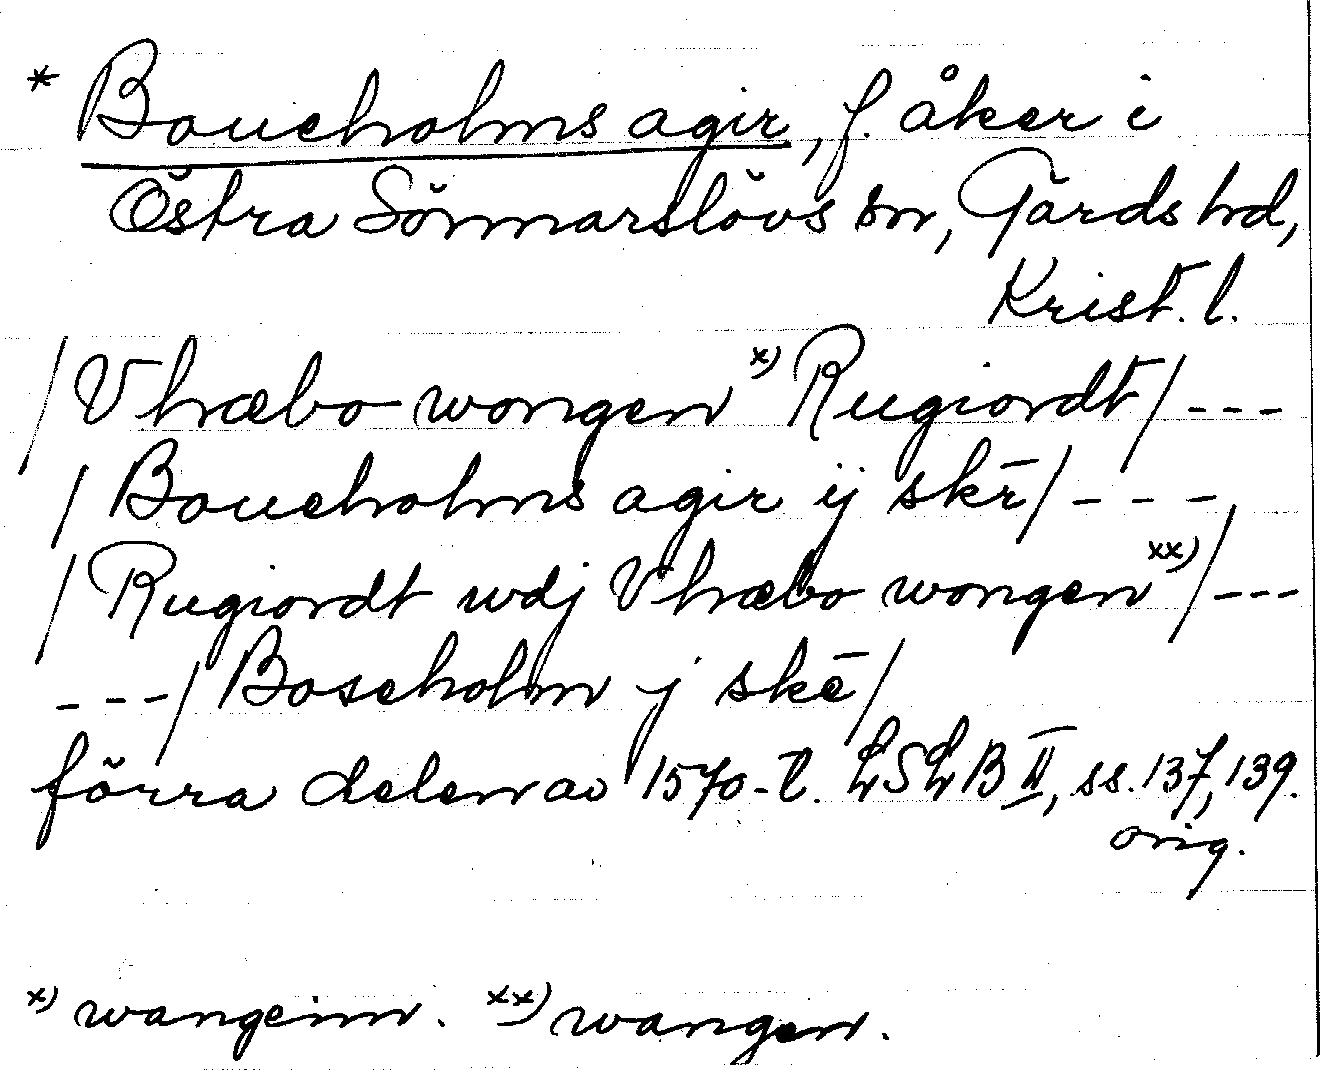 * Boueholms agir, f. åker i
Östra Sönnarslövs sn, Gärds hd,
Krist. l.
/Vhræbo wongen x) Rugiordt/ ---
/Boueholms agir ij skē/ - - -
/Rugiordt wdj Vhræbo wongen xx)/ ---
---/Boseholm j skē/
förra delen av 1570-t. LSLB II, ss. 137, 139.
orig.
x) wangeinn. xx) wangen.